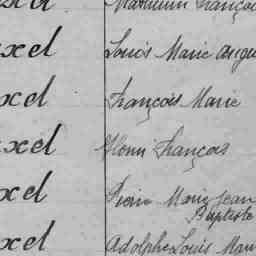 François
xel Louis Marie Augu
xel François Marie
xel Henri François
xel Pierre Marie Jean
Baptiste
xel Adolphe Louis Mari